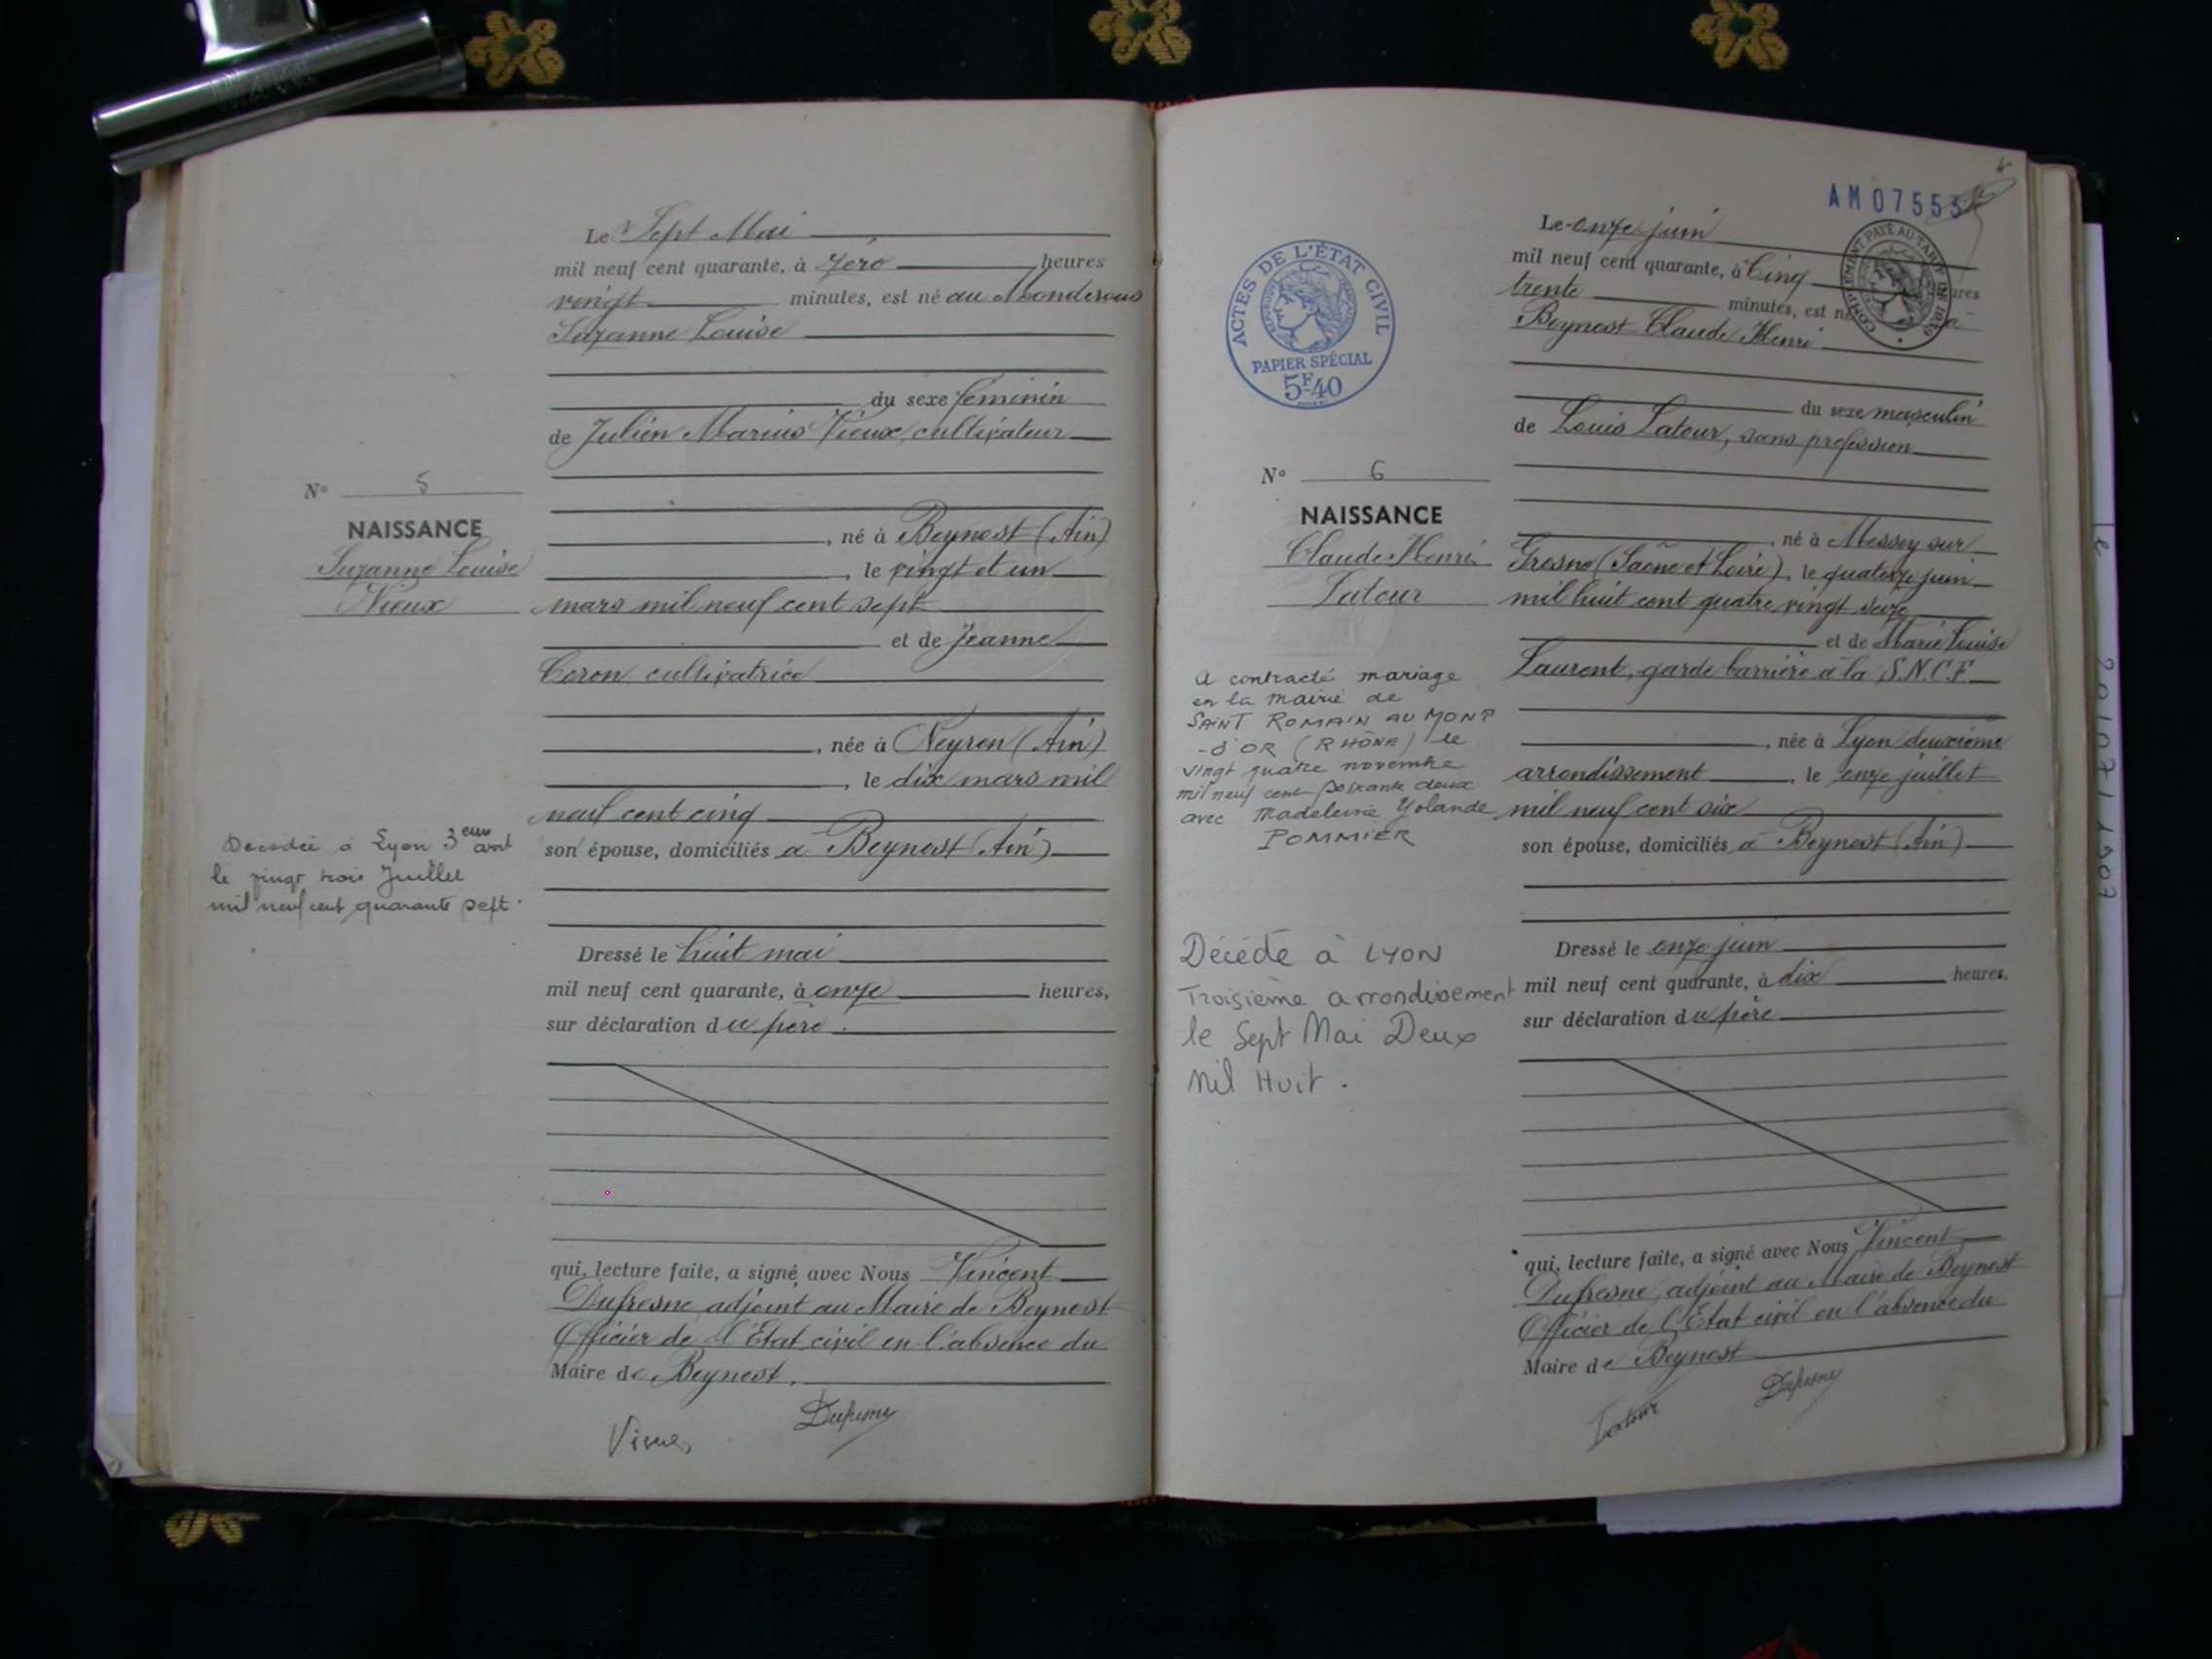 Le Sept Mai
mil neuf cent quarante, à zéro heures
vingt minutes, est né au Mondésous
Suzanne Louise
du sexe féminin
de Julien Marius Vieux, cultivateur
N° 5
NAISSANCE
Suzanne Louise
Vieux
, né à Beynost (Ain)
, le vingt et un
mars mil neuf cent sept
et de Jeanne
Ceron cultivatrice
, née à Neyron (Ain)
, le dix mars mil
neuf cent cinq
son épouse, domiciliés à Beynost (Ain)
Décédée à Lyon 3eme arrt
le vingt trois Juillet
mil neuf cent quarante sept.
Dressé le huit mai
mil neuf cent quarante, à onze heures,
sur déclaration du père.
qui, lecture faite, a signé avec Nous Vincent
Dufresne, adjoint au Maire de Beynost
Officier de l'Etat civil en l'absence du
Maire de Beynost.
Vieux
Dufresne
AM0755
ACTES DE L'ÉTAT CIVIL
PAPIER SPÉCIAL
5F40
COMPLÉMENT PAYÉ AU TARIF DE 1939
Le onze juin
mil neuf cent quarante, à Cinq heures
trente minutes, est né à
Beynost Claude Henri
du sexe masculin
de Louis Latour, sans profession
N° 6
NAISSANCE
Claude Henri
Latour
, né à Messey sur
Grosne (Saône et Loire), le quatorze juin
mil huit cent quatre vingt seize
et de Marie Louise
Laurent, garde barrière à la S.N.C.F.
, née à Lyon deuxième
arrondissement, le onze juillet
mil neuf cent six
son épouse, domiciliés à Beynost (Ain)
A contracté mariage
en la mairie de
SAINT ROMAIN AU MONT
-D'OR (RHÔNE) le
vingt quatre novembre
mil neuf cent soixante deux
avec Madeleine Yolande
POMMIER
Décédé à LYON
Troisième arrondissement
le Sept Mai Deux
Mil Huit.
Dressé le onze juin
mil neuf cent quarante, à dix heures,
sur déclaration du père
qui, lecture faite, a signé avec Nous Vincent
Dufresne, adjoint au Maire de Beynost
Officier de l'Etat civil en l'absence du
Maire de Beynost
Latour
Dufresne